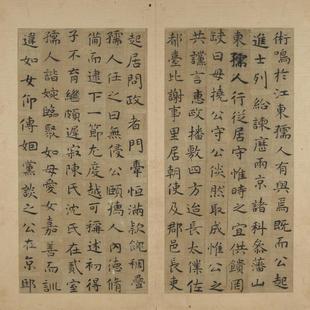 術鳴於江東孺人有與焉既而公起
進士列給諫歷兩京諸科參藩山
東孺人行從居守惟時之宜供饋罔
缺曰毋撓公守公然取成惟公之
共讜言惠政播四方長太僕佐
都臺比謝事里居朝使及郡邑長吏
起居問政者門恒滿款餽稠疊
孺人任之曰無侵公頤孺人內德脩
備而逮下一節尤度越可稱述初得
子不育繼頗遲陳氏沈氏在貳室
孺人諧婉聚如母女嘉善而訓
違如女仰傅姻黨談之公在京邸